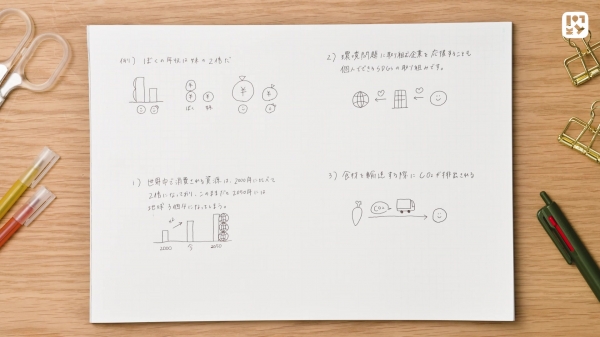 例) ぼくの年収は妹の2倍だ
¥
¥
¥
ぼく 妹
¥
¥
2) 環境問題に取り組む企業を応援することも
個人でできるSDGsの取り組みです。
1) 世界中で消費される資源は、2000年に比べて
2倍になっており、このままだと2050年には
地球3個分になってしまう。
×2
2000 今 2050
3) 食材を輸送する際にCO2が排出される
CO2